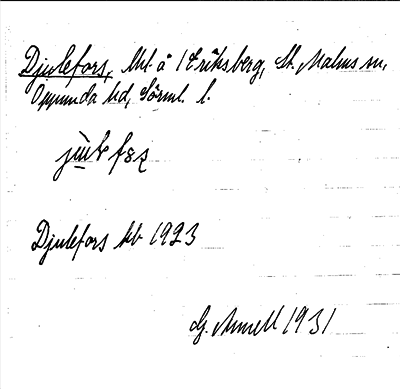 Djulefors, kbl. å 1 Eriksberg, St. Malms sn,
Oppunda hd, Sörml. l.
Djulefors kb 1923
G. Arnell 1931